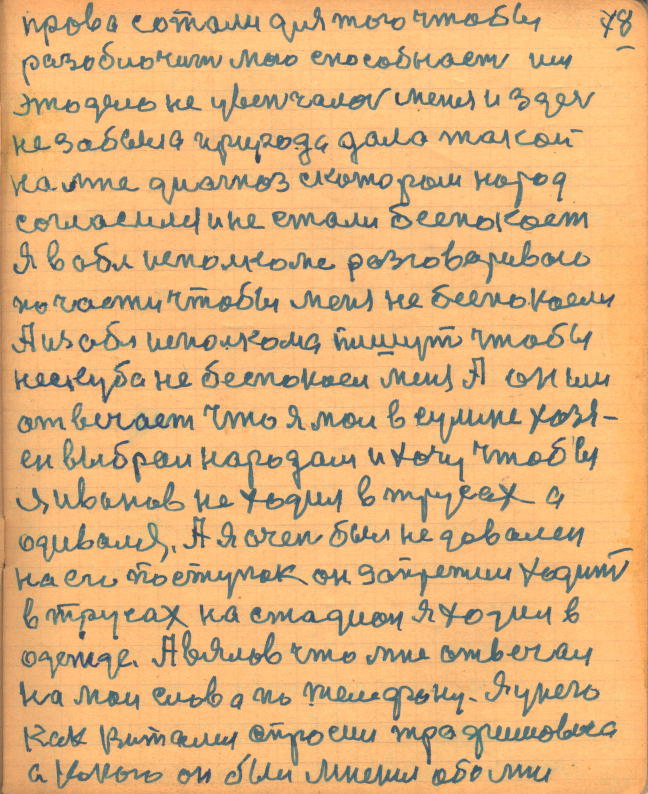 прова сотали для того чтобы 48
разоблочит мою способност ни
это дело не увенчалос меня и здес
не забыла природа дала такой
на мне диагноз с котором народ
согласился и не стали беспокоет
Я в обл исполкоме разговариваю
по части чтобы меня не беспокоели
А из обл исполкома пишут чтобы
не беспокоел меня А он им
отвечает что я мол в сумине хозя-
ен выбран народам и хочу чтобы
я иванов не ходил в трусах а
одивался. А я очен был не довален
на его поступак он запретил ходит
в трусах на стадион я ходил в
одежде. А вялов что мне отвечал
на мои слова по телефону. Я у него
как Виталия спросил трафимовича
а какого он был мнения обо мни